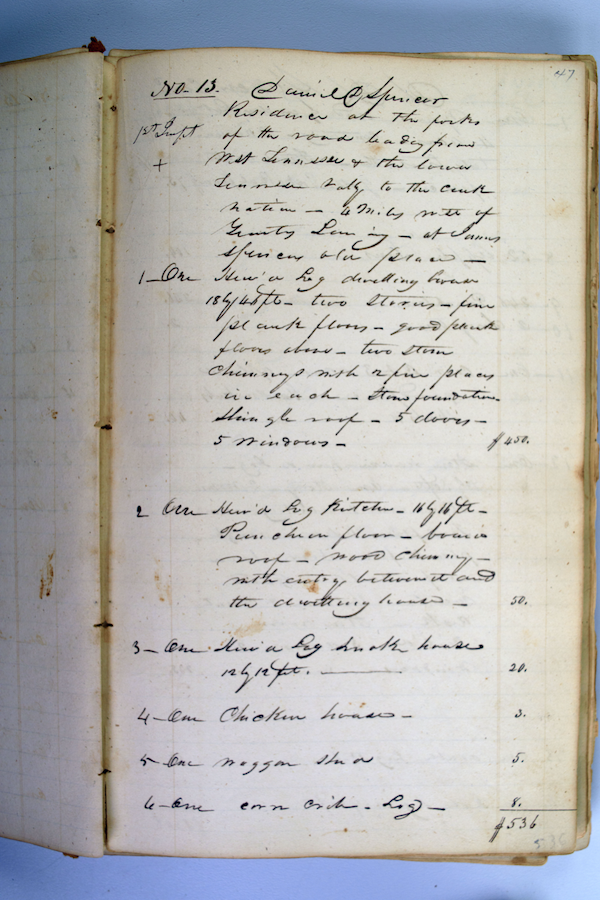 47.
No. 13. Daniel Spencer
Residence at the forks
1st Dept of the road leading from
+ West Tennessee & the lower
Tennessee Valy to the
nation – 4 Miles west of
– at James
Spencers old place –
1 – One Hew'd Log dwelling house
18 by 44 ft – two Stories – fine
plank floors – good plank
floors above – two Stone
Chimneys with 2 fire places
in each – Stone foundation
Shingle roof – 5 doors –
5 windows – $450.
2 One Hew'd Log Kitchen – 16 by 16 ft –
Puncheon floor – board
roof – wood Chimney –
with entry between it and
the dwelling house – 50.
3 – One Hew'd Log Smoke house
12 by 12 ft. – 20.
4 – One Chicken house – 3.
5 – One waggon shed 5.
6 – One corn crib – Log – 8.
$536